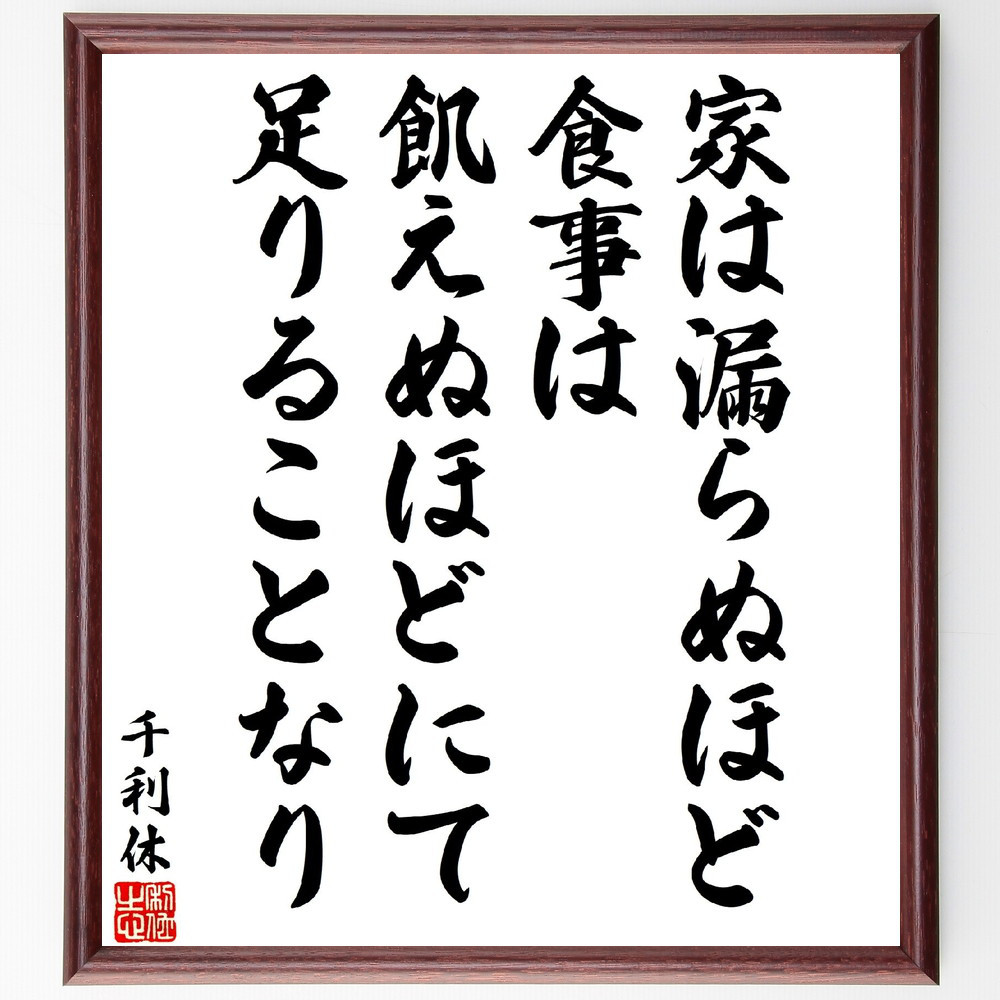 家は漏らぬほど
食事は
飢えぬほどにて
足りることなり
千利休